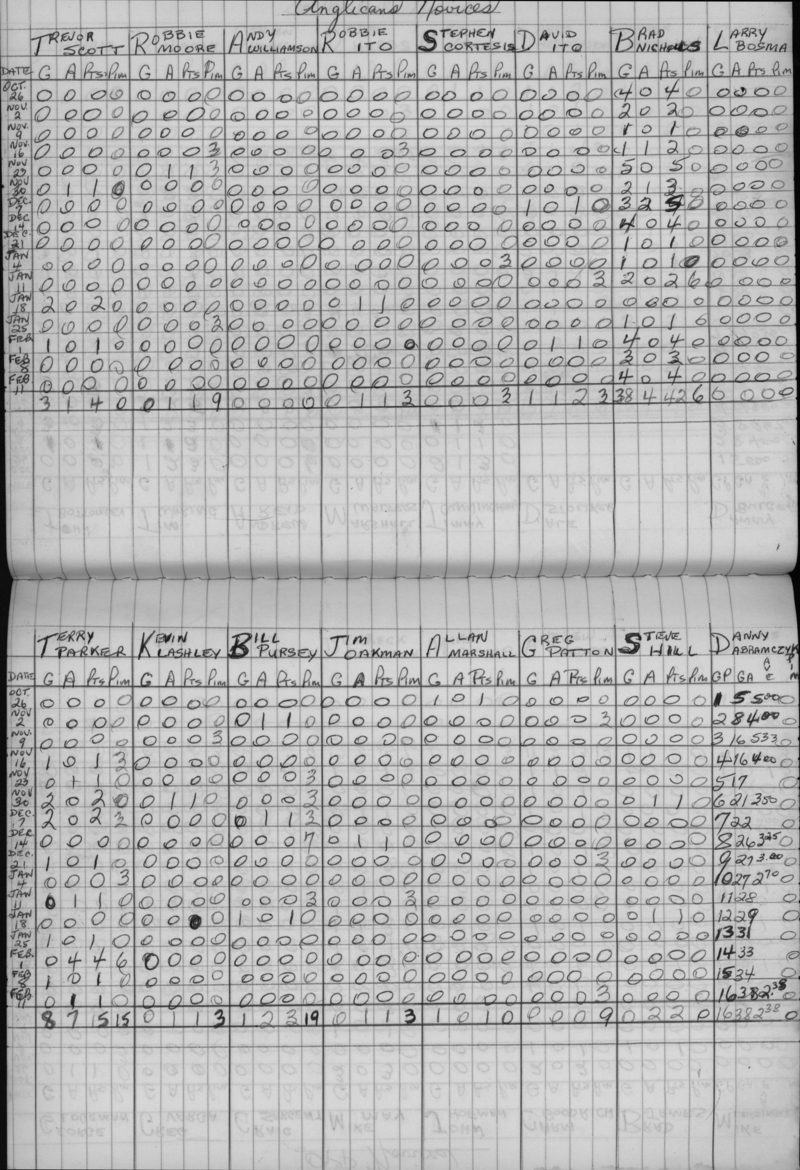 Anglicans Novices
TREVOR SCOTT ROBBIE MOORE ANDY WILLIAMSON ROBBIE ITO STEPHEN CORTESIS DAVID ITO BRAD NICHOLLS LARRY BOSMA
DATE G A Pts Pim G A Pts Pim G A Pts Pim G A Pts Pim G A Pts Pim G A Pts Pim G A Pts Pim G A Pts Pim
OCT. 26 0 0 0 0 0 0 0 0 0 0 0 0 0 0 0 0 0 0 0 0 0 0 0 0 4 0 4 0 0 0 0 0
NOV 2 0 0 0 0 0 0 0 0 0 0 0 0 0 0 0 0 0 0 0 0 0 0 0 0 2 0 2 0 0 0 0 0
NOV. 9 0 0 0 0 0 0 0 0 0 0 0 0 0 0 0 0 0 0 0 0 0 0 0 0 1 0 1 0 0 0 0 0
NOV 16 0 0 0 0 0 0 0 3 0 0 0 0 0 0 0 3 0 0 0 0 0 0 0 0 1 1 2 0 0 0 0 0
NOV 23 0 0 0 0 0 1 1 3 0 0 0 0 0 0 0 0 0 0 0 0 0 0 0 0 5 0 5 0 0 0 0 0
NOV 30 0 1 1 0 0 0 0 0 0 0 0 0 0 0 0 0 0 0 0 0 0 0 0 0 2 1 3 0 0 0 0 0
DEC 7 0 0 0 0 0 0 0 0 0 0 0 0 0 0 0 0 0 0 0 0 1 0 1 0 3 2 5 0 0 0 0 0
DEC 14 0 0 0 0 0 0 0 0 0 0 0 0 0 0 0 0 0 0 0 0 0 0 0 0 4 0 4 0 0 0 0 0
DEC. 21 0 0 0 0 0 0 0 0 0 0 0 0 0 0 0 0 0 0 0 0 0 0 0 0 1 0 1 0 0 0 0 0
JAN 4 0 0 0 0 0 0 0 0 0 0 0 0 0 0 0 0 0 0 0 3 0 0 0 0 1 0 1 0 0 0 0 0
JAN 11 0 0 0 0 0 0 0 0 0 0 0 0 0 0 0 0 0 0 0 0 0 0 0 3 2 0 2 6 0 0 0 0
JAN 18 2 0 2 0 0 0 0 0 0 0 0 0 0 1 1 0 0 0 0 0 0 0 0 0 0 0 0 0 0 0 0 0
JAN 25 0 0 0 0 0 0 0 3 0 0 0 0 0 0 0 0 0 0 0 0 0 0 0 0 1 0 1 0 0 0 0 0
FEB 1 1 0 1 0 0 0 0 0 0 0 0 0 0 0 0 0 0 0 0 0 0 1 1 0 4 0 4 0 0 0 0 0
FEB 8 0 0 0 0 0 0 0 0 0 0 0 0 0 0 0 0 0 0 0 0 0 0 0 0 3 0 3 0 0 0 0 0
FEB 11 0 0 0 0 0 0 0 0 0 0 0 0 0 0 0 0 0 0 0 0 0 0 0 0 4 0 4 0 0 0 0 0
3 1 4 0 0 1 1 9 0 0 0 0 0 1 1 3 0 0 0 3 1 1 2 3 38 4 42 6 0 0 0 0
TERRY PARKER KEVIN LASHLEY BILL PURSEY JIM OAKMAN ALLAN MARSHALL GREG PATTON STEVE HILL DANNY DABRAMCZYK
DATE G A Pts Pim G A Pts Pim G A Pts Pim G A Pts Pim G A Pts Pim G A Pts Pim G A Pts Pim GP GA Pim
OCT. 26 0 0 0 0 0 0 0 0 0 0 0 0 0 0 0 0 1 0 1 0 0 0 0 0 0 0 0 0 1 5 5.00 0
NOV 2 0 0 0 0 0 0 0 0 0 1 1 0 0 0 0 0 0 0 0 0 0 0 0 3 0 0 0 0 2 8 4.00 0
NOV. 9 0 0 0 0 0 0 0 3 0 0 0 0 0 0 0 0 0 0 0 0 0 0 0 0 0 0 0 0 3 16 533 0
NOV 16 1 0 1 3 0 0 0 0 0 0 0 0 0 0 0 0 0 0 0 0 0 0 0 0 0 0 0 0 4 16 400 0
NOV 23 0 1 1 0 0 0 0 0 0 0 0 3 0 0 0 0 0 0 0 0 0 0 0 0 0 0 0 0 5 17 0
NOV 30 2 0 2 0 0 1 1 0 0 0 0 3 0 0 0 0 0 0 0 0 0 0 0 0 0 1 1 0 6 21 350 0
DEC. 7 2 0 2 3 0 0 0 0 0 1 1 3 0 0 0 0 0 0 0 0 0 0 0 0 0 0 0 0 7 22 0
DEC 14 0 0 0 0 0 0 0 0 0 0 0 7 0 1 1 0 0 0 0 0 0 0 0 0 0 0 0 0 8 26 325 0
DEC. 21 1 0 1 0 0 0 0 0 0 0 0 0 0 0 0 0 0 0 0 0 0 0 0 3 0 0 0 0 9 27 3.00 0
JAN 4 0 0 0 3 0 0 0 0 0 0 0 0 0 0 0 0 0 0 0 0 0 0 0 0 0 0 0 0 10 27 270 0
JAN 11 0 1 1 0 0 0 0 0 0 0 0 3 0 0 0 3 0 0 0 0 0 0 0 0 0 0 0 0 11 28 0
JAN 18 0 0 0 0 0 0 0 0 1 0 1 0 0 0 0 0 0 0 0 0 0 0 0 0 0 1 1 0 12 29 0
JAN 25 1 0 1 0 0 0 0 0 0 0 0 0 0 0 0 0 0 0 0 0 0 0 0 0 0 0 0 0 13 31 0
FEB. 1 0 4 4 6 0 0 0 0 0 0 0 0 0 0 0 0 0 0 0 0 0 0 0 0 0 0 0 0 14 33 0
FEB 8 1 0 1 0 0 0 0 0 0 0 0 0 0 0 0 0 0 0 0 0 0 0 0 0 0 0 0 0 15 34 0
FEB 11 0 1 1 0 0 0 0 0 0 0 0 0 0 0 0 0 0 0 0 0 0 0 0 3 0 0 0 0 16 38 2.38 0
8 7 15 15 0 1 1 3 1 2 3 19 0 1 1 3 1 0 1 0 0 0 0 9 0 2 2 0 16 38 2 38 0